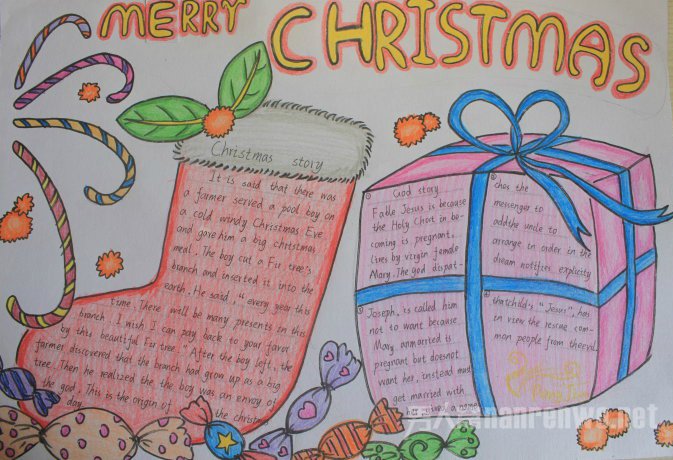 MERRY CHRISTMAS
Christmas story
It is said that there was
a farmer served a pool boy on
a cold windy Christmas Eve
and gave him a big christmas
meal. The boy cut a Fir tree's
branch and inserted it into the
earth. He said. "every year this
time. There will be many presents in this
branch. I wish I can pay back to your favor
by this beautiful Fir tree." After the boy left, the
farmer discovered that the branch had grow up as a big
tree. Then he realized the the boy was an envoy of
the god. This is the origin of the christmas
day.
① God story
Fable Jesus is because
the Holy Ghost in be-
coming is pregnant.
lires by virgin female
Mary. The god dispat-
② ches the
messenger to
addthe unile to
arrange in order in the
dream notifies explicity
③ Joseph, is called him
not to want because
Mary anmarried is
pregnant but doesnot
want her, instead must
get married with
her, gives a name
④ thatchild's "Jesus", has
in view the rescue com-
mon people from theevil.